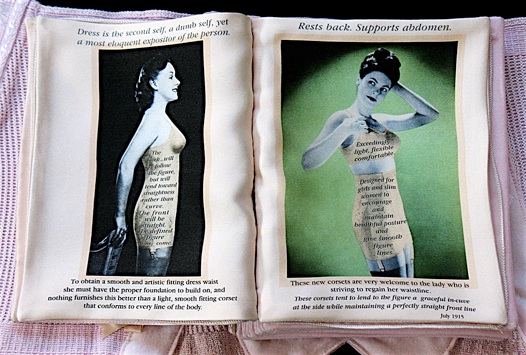 Dress is the second self, a dumb self, yet
a most eloquent expositor of the person.
The
will
follow
the figure,
but will
tend toward
straightness
rather than
curve.
The front
will be
straight.
defined
figure
come.
To obtain a smooth and artistic fitting dress waist
she must have the proper foundation to build on, and
nothing furnishes this better than a light, smooth fitting corset
that conforms to every line of the body.
Rests back. Supports abdomen.
Exceedingly
light, flexible
comfortable.
Designed for
girls and slim
women to
encourage
and
maintain
beautiful posture
and
give smooth
figure
lines
These new corsets are very welcome to the lady who is
striving to regain her waistline.
These corsets tent to lend to the figure a graceful in-cuve
at the side while maintaining a perfectly straight front line
July 1915